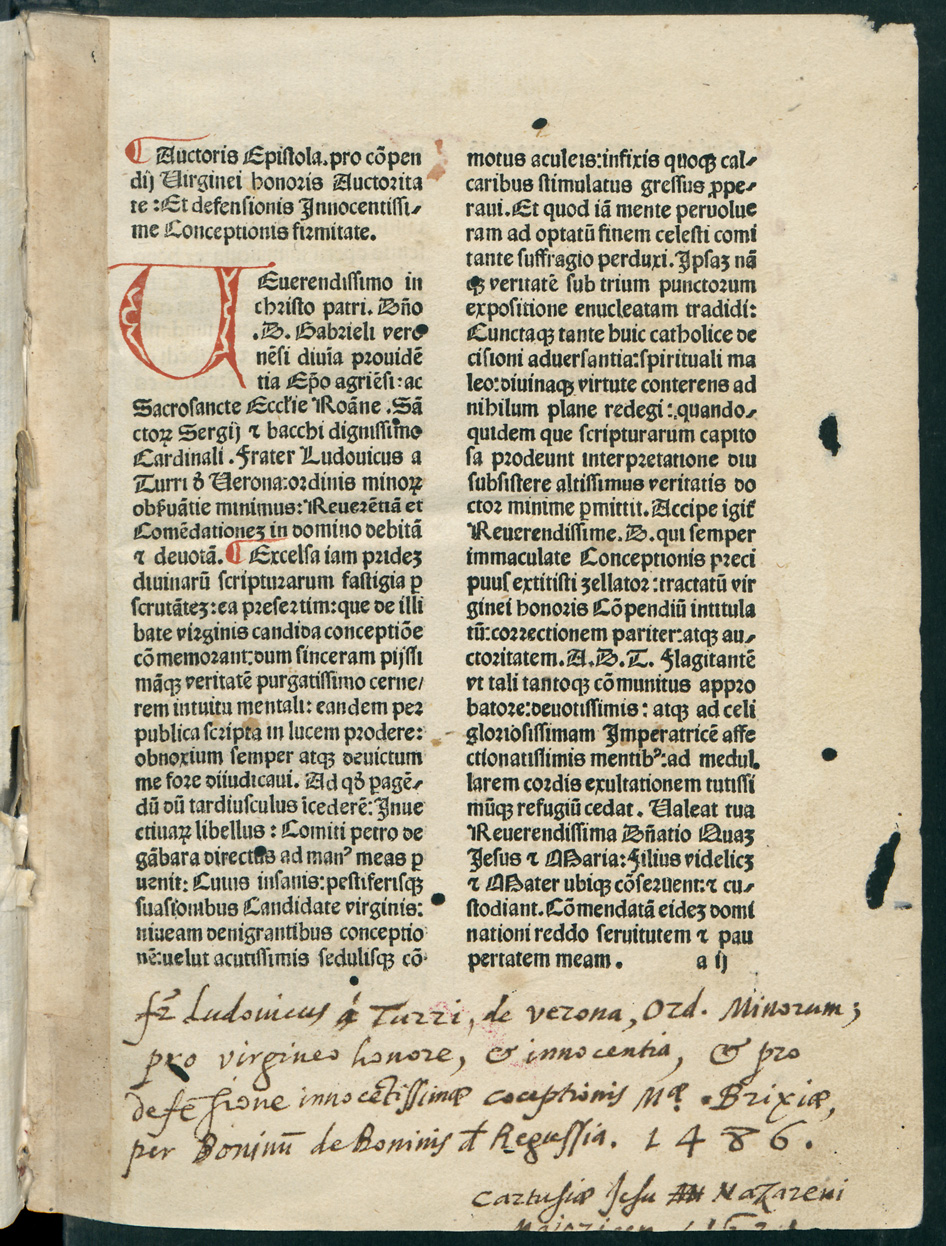 ¶ Auctoris Epistola.pro cōpen
dij Virginei honoris Auctorita
te :Et defensionis Innocentissi⸗
me Conceptionis firmitate.
UEuerendissimo in
christo patri. Dño
.D. Gabrieli vero
nēsi diuīa prouidē
tia Ep̄o agriēsi: ac
Sacrosancte Eccl̄ie Roāne .Sā
ctoꝝ Sergij ⁊ bacchi dignissimo
Cardinali .Frater Ludouicus a
Turri ð Verona:ordinis minoꝝ
obẜuātie minimus: Reuerētiā et
Comēdationeꝫ in domino debitā
⁊ deuotā. ¶ Excelsa iam prideꝫ
diuinarū scripturarum fastigia ꝑ
scrutāteꝫ:ea presertim:que de illi
bate virginis candida conceptiōe
cōmemorant:dum sinceram pijssi
māqꝫ veritatē purgatissimo cerne/
rem intuitu mentali: eandem per
publica scripta in lucem prodere:
obnoxium semper atqꝫ deuictum
me fore diiudicaui. Ad qð pagē⸗
dū dū tardiusculus īcederē: Inue
ctiuaꝝ libellus : Comiti petro de
gābara directus ad manꝰ meas ꝑ
uenit: Cuius insanis: pestiferisqꝫ
suasionibus Candidate virginis:
niueam denigrantibus conceptio
nē:uelut acutissimis sedulisqꝫ cō⸗
motus aculeis:infixis quoqꝫ cal⸗
caribus stimulatus gressus ꝓpe⸗
raui.Et quod iā mente peruolue
ram ad optatū finem celesti comi
tante suffragio perduxi. Ipsaꝫ nā
qꝫ veritatē sub trium punctorum
expositione enucleatam tradidi:
Cunctaqꝫ tante huic catholice de
cisioni aduersantia:spirituali ma
leo:diuinaqꝫ virtute conterens ad
nihilum plane redegi: quando⸗
quidem que scripturarum capito
sa prodeunt interpretatione diu
subsistere altissimus veritatis do
ctor minime ꝑmittit. Accipe igiť
Reuerendissime .D. qui semper
immaculate Conceptionis preci
puus extitisti zellator :tractatū vir
ginei honoris Cōpendiū intitula
tū:correctionem pariter:atqꝫ au⸗
ctoritatem. A. D. T. flagitantē
vt tali tantoqꝫ cōmunitus appro
batore:deuotissimis : atqꝫ ad celi
gloriosissimam Imperatricē affe
ctionatissimis mentibꝰ:ad medul.
larem cordis exultationem tutissi
mūqꝫ refugiū cedat . Valeat tua
Reuerendissima Dñatio Quaꝫ
Jesus ⁊ Maria: filius videlicꝫ
⁊ Mater ubiqꝫ cōseruent:⁊ cu⸗
stodiant. Cōmendatā eideꝫ domi
nationi reddo seruitutem ⁊ pau
pertatem meam .
a ij
fr̃ Ludouicus á Turri, de verona, Ord. Minorum;
pro virgineo honore, & innocentia, & pro
defēsione innocētissimæ cōceptionis Mę . Brixiæ,
per Boninū de Boninis đ Regussia. 1486.
Cartusiæ Jesu Nazareni